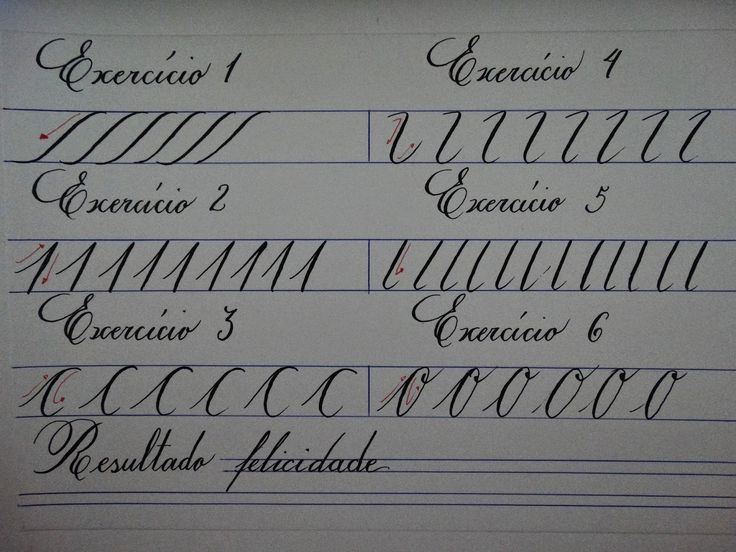 Exercício 1 Exercício 4
Exercício 2 Exercício 5
Exercício 3 Exercício 6
Resultado felicidade